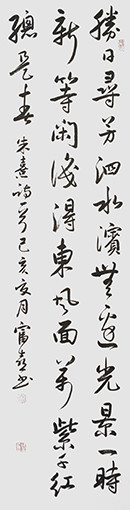 勝日尋芳泗水濱無邊光景一時
新等閑識得東風面萬紫千紅
總是春 朱熹詩一首己亥亥月富書